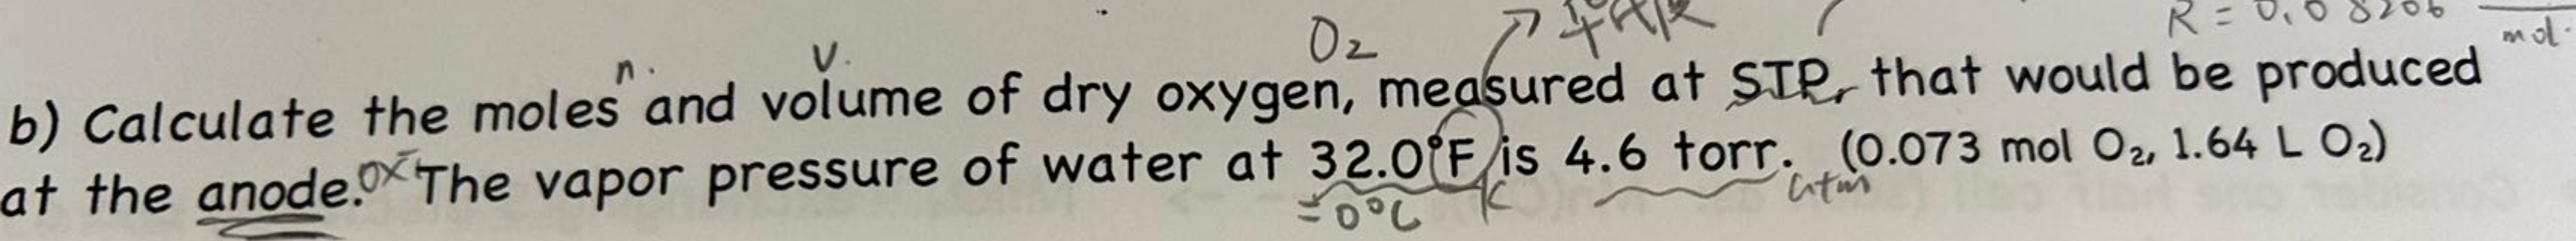 O₂
R = 0.08206
mol.
n. V.
b) Calculate the moles and volume of dry oxygen, measured at STP, that would be produced
at the anode. ox The vapor pressure of water at 32.0°F is 4.6 torr. (0.073 mol O₂, 1.64 L O₂)
=0°C K atm